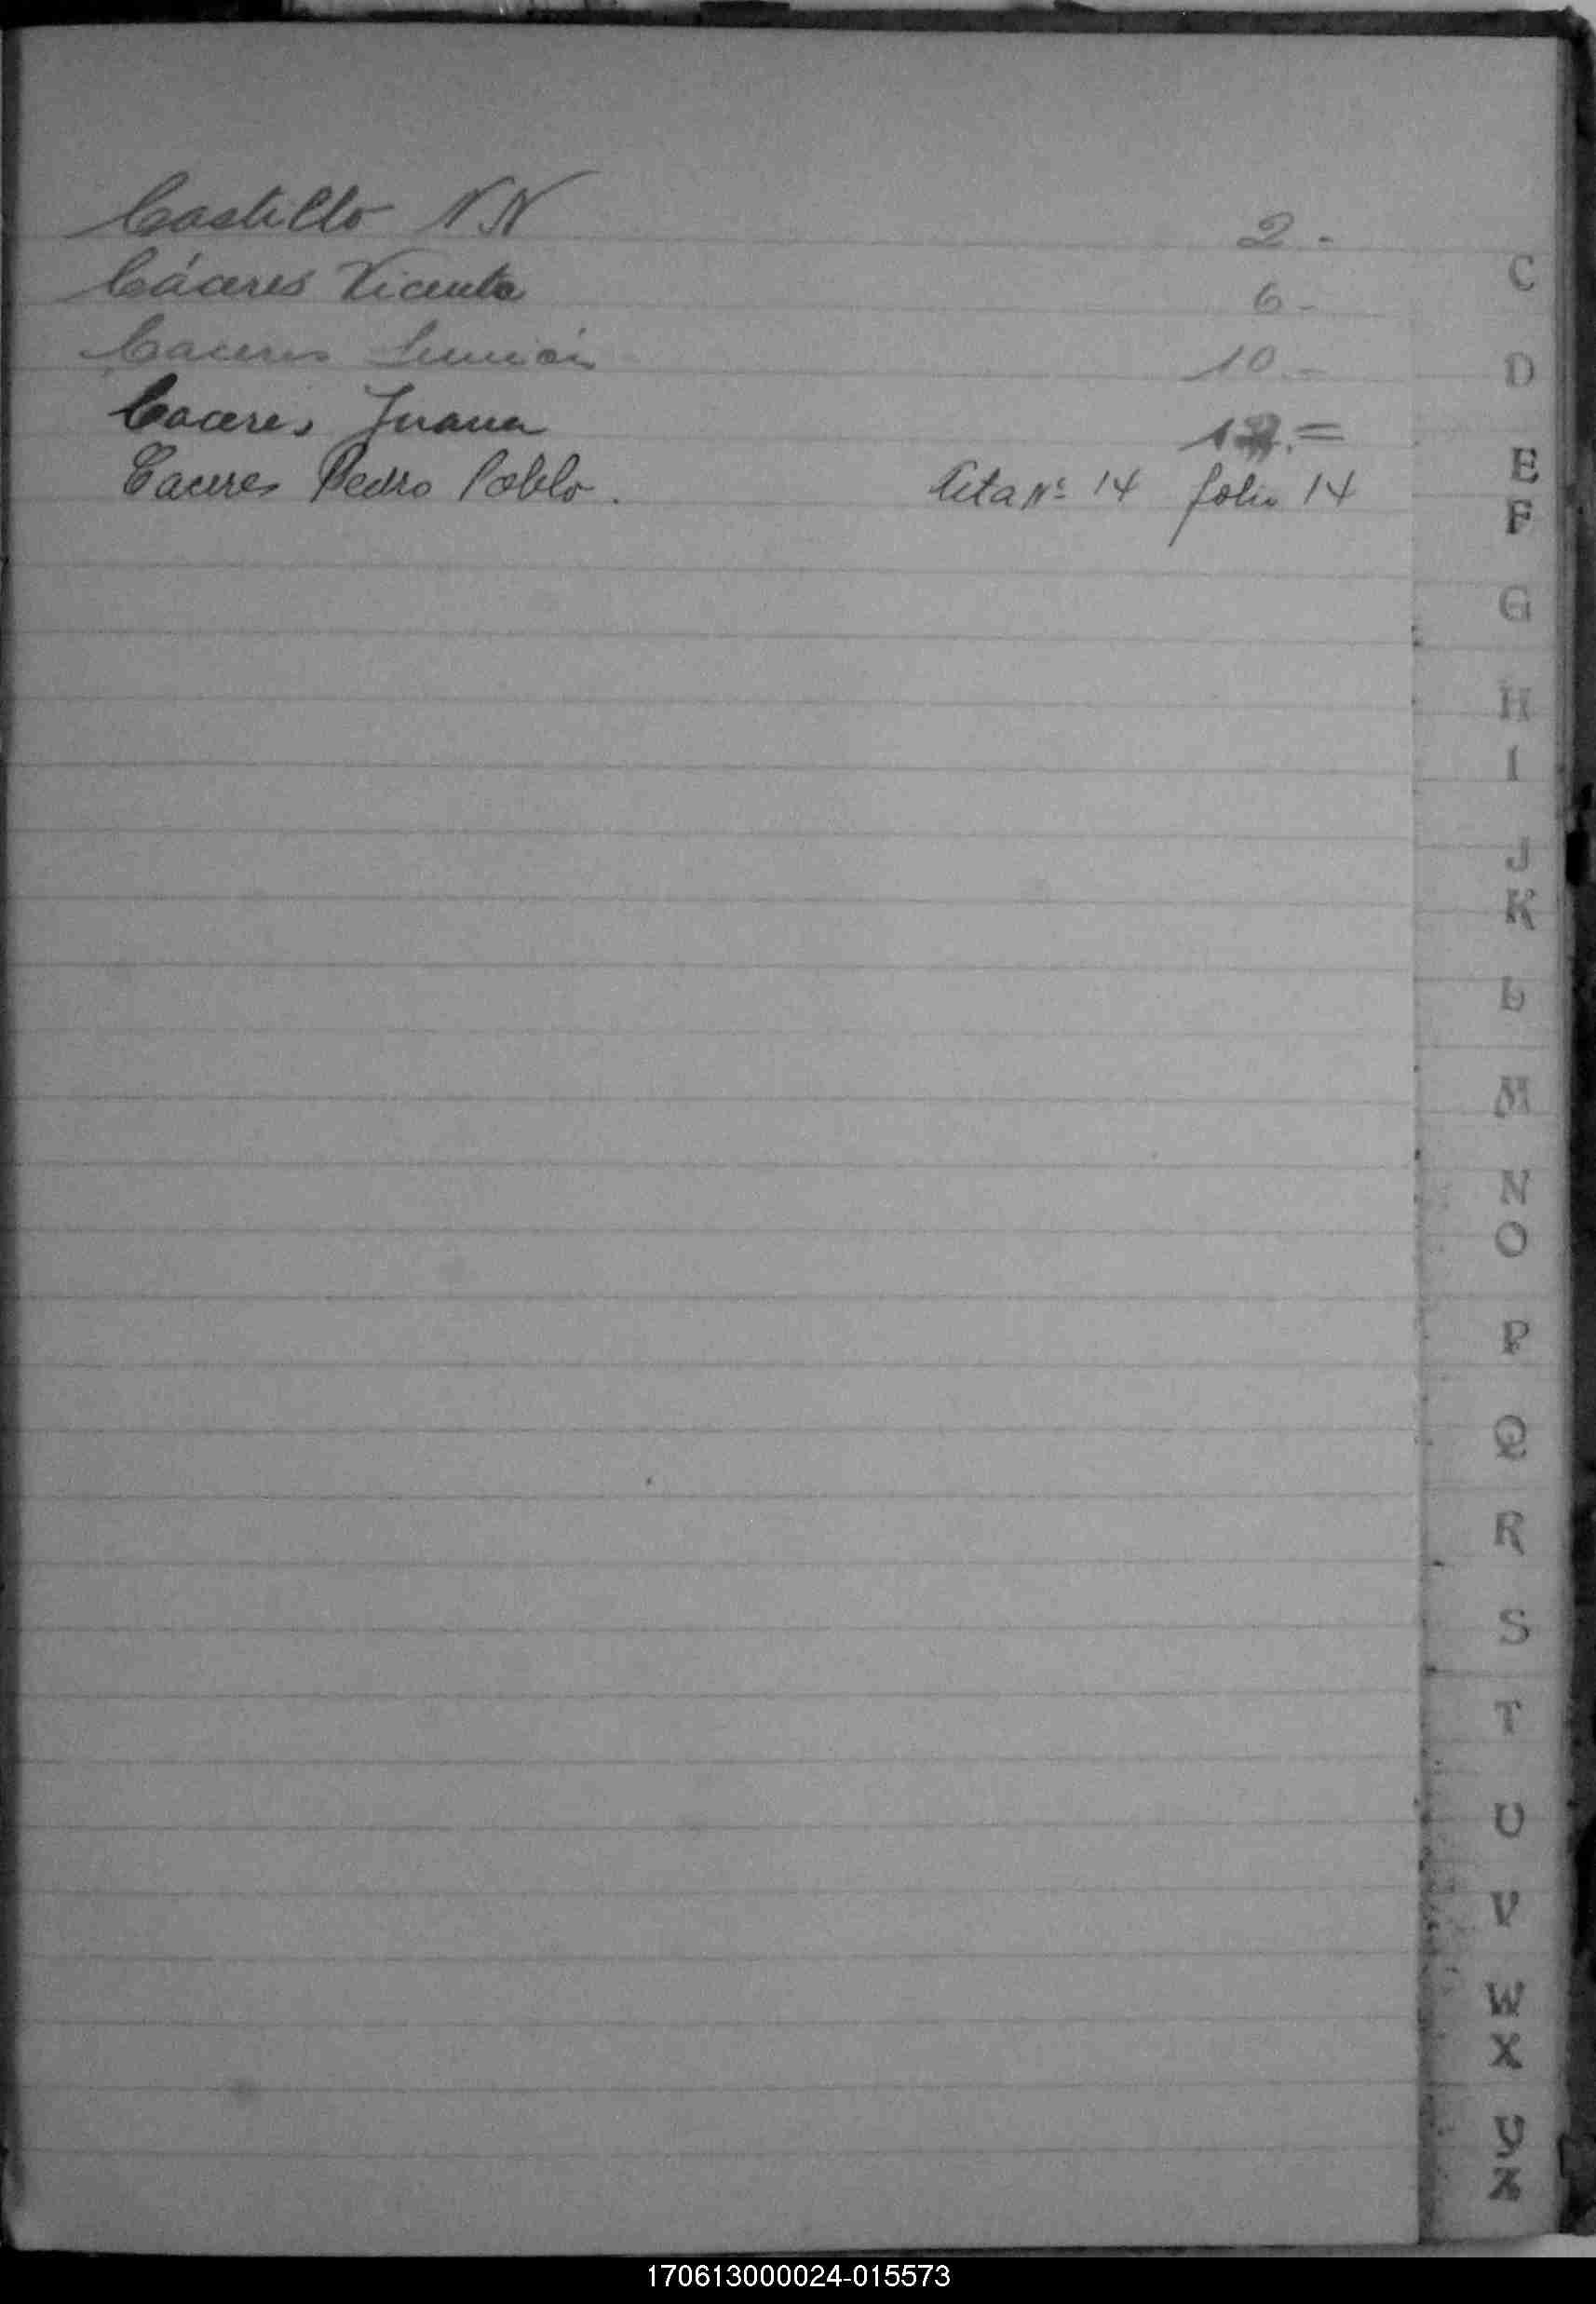 Castillo N N 2 -
Cáceres Vicenta 6 -
Caceres 10 -
Caceres Juana
Caceres Pedro Pablo. Acta Nº 14 folio 14
C
D
E
F
G
H
I
J
K
L
M
N
O
P
Q
R
S
T
U
V
W
X
Y
Z
170613000024-015573